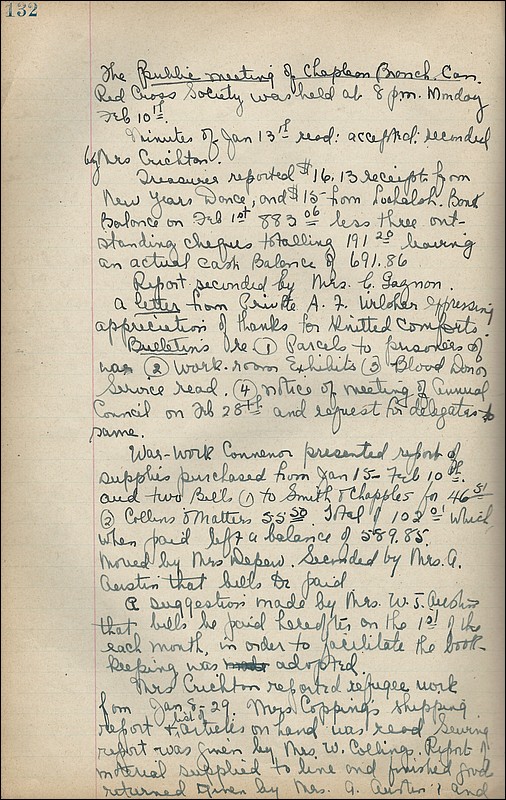 132
The Public meeting of Chapleau Branch. Can.
Red Cross Society was held at 8 pm. Monday
Feb 10th.
Minutes of Jan 13th read: accepted: seconded
by Mrs Crichton.
Treasurer reported $16.13 receipts from
New Years Dance, and $15- from Lochalsh. Bank
Balance on Feb 1st 883 06 less three out-
standing cheques totalling 191 20 leaving
an actual cash Balance of 691.86
Report seconded by Mrs. C. Gagnon.
A letter from Private A. F. expressing
appreciation & thanks for Knitted Comforts.
Bulletins re (1) Parcels to prisoners of
war (2) Work-room Exhibits (3) Blood Donor
Service read. (4) notice of meeting of Annual
Council on Feb 28th and request for delegates to
same.
War-Work Convenor presented report of
supplies purchased from Jan 15- Feb 10th.
and two Bells (1) to Smith & Chapples for 46 51
(2) Collins & Matters 55 50. Total of 102 01 which
when paid left a balance of 589.85.
Moved by Mrs Depew. Seconded by Mrs. A.
Austin that bills be paid
A suggestion made by Mrs. W. J. Austin
that bills be paid hereafter on the 1st of the
each month, in order to facilitate the book-
keeping was adopted.
Mrs Crichton reported refugee work
from Jan 8-29. Mrs Coppings shipping
report & list of articles on hand was read Sewing
report was given by Mrs. W. Collings. Report of
material supplied to line and finished goods
returned given by Mrs. A. Austin: and